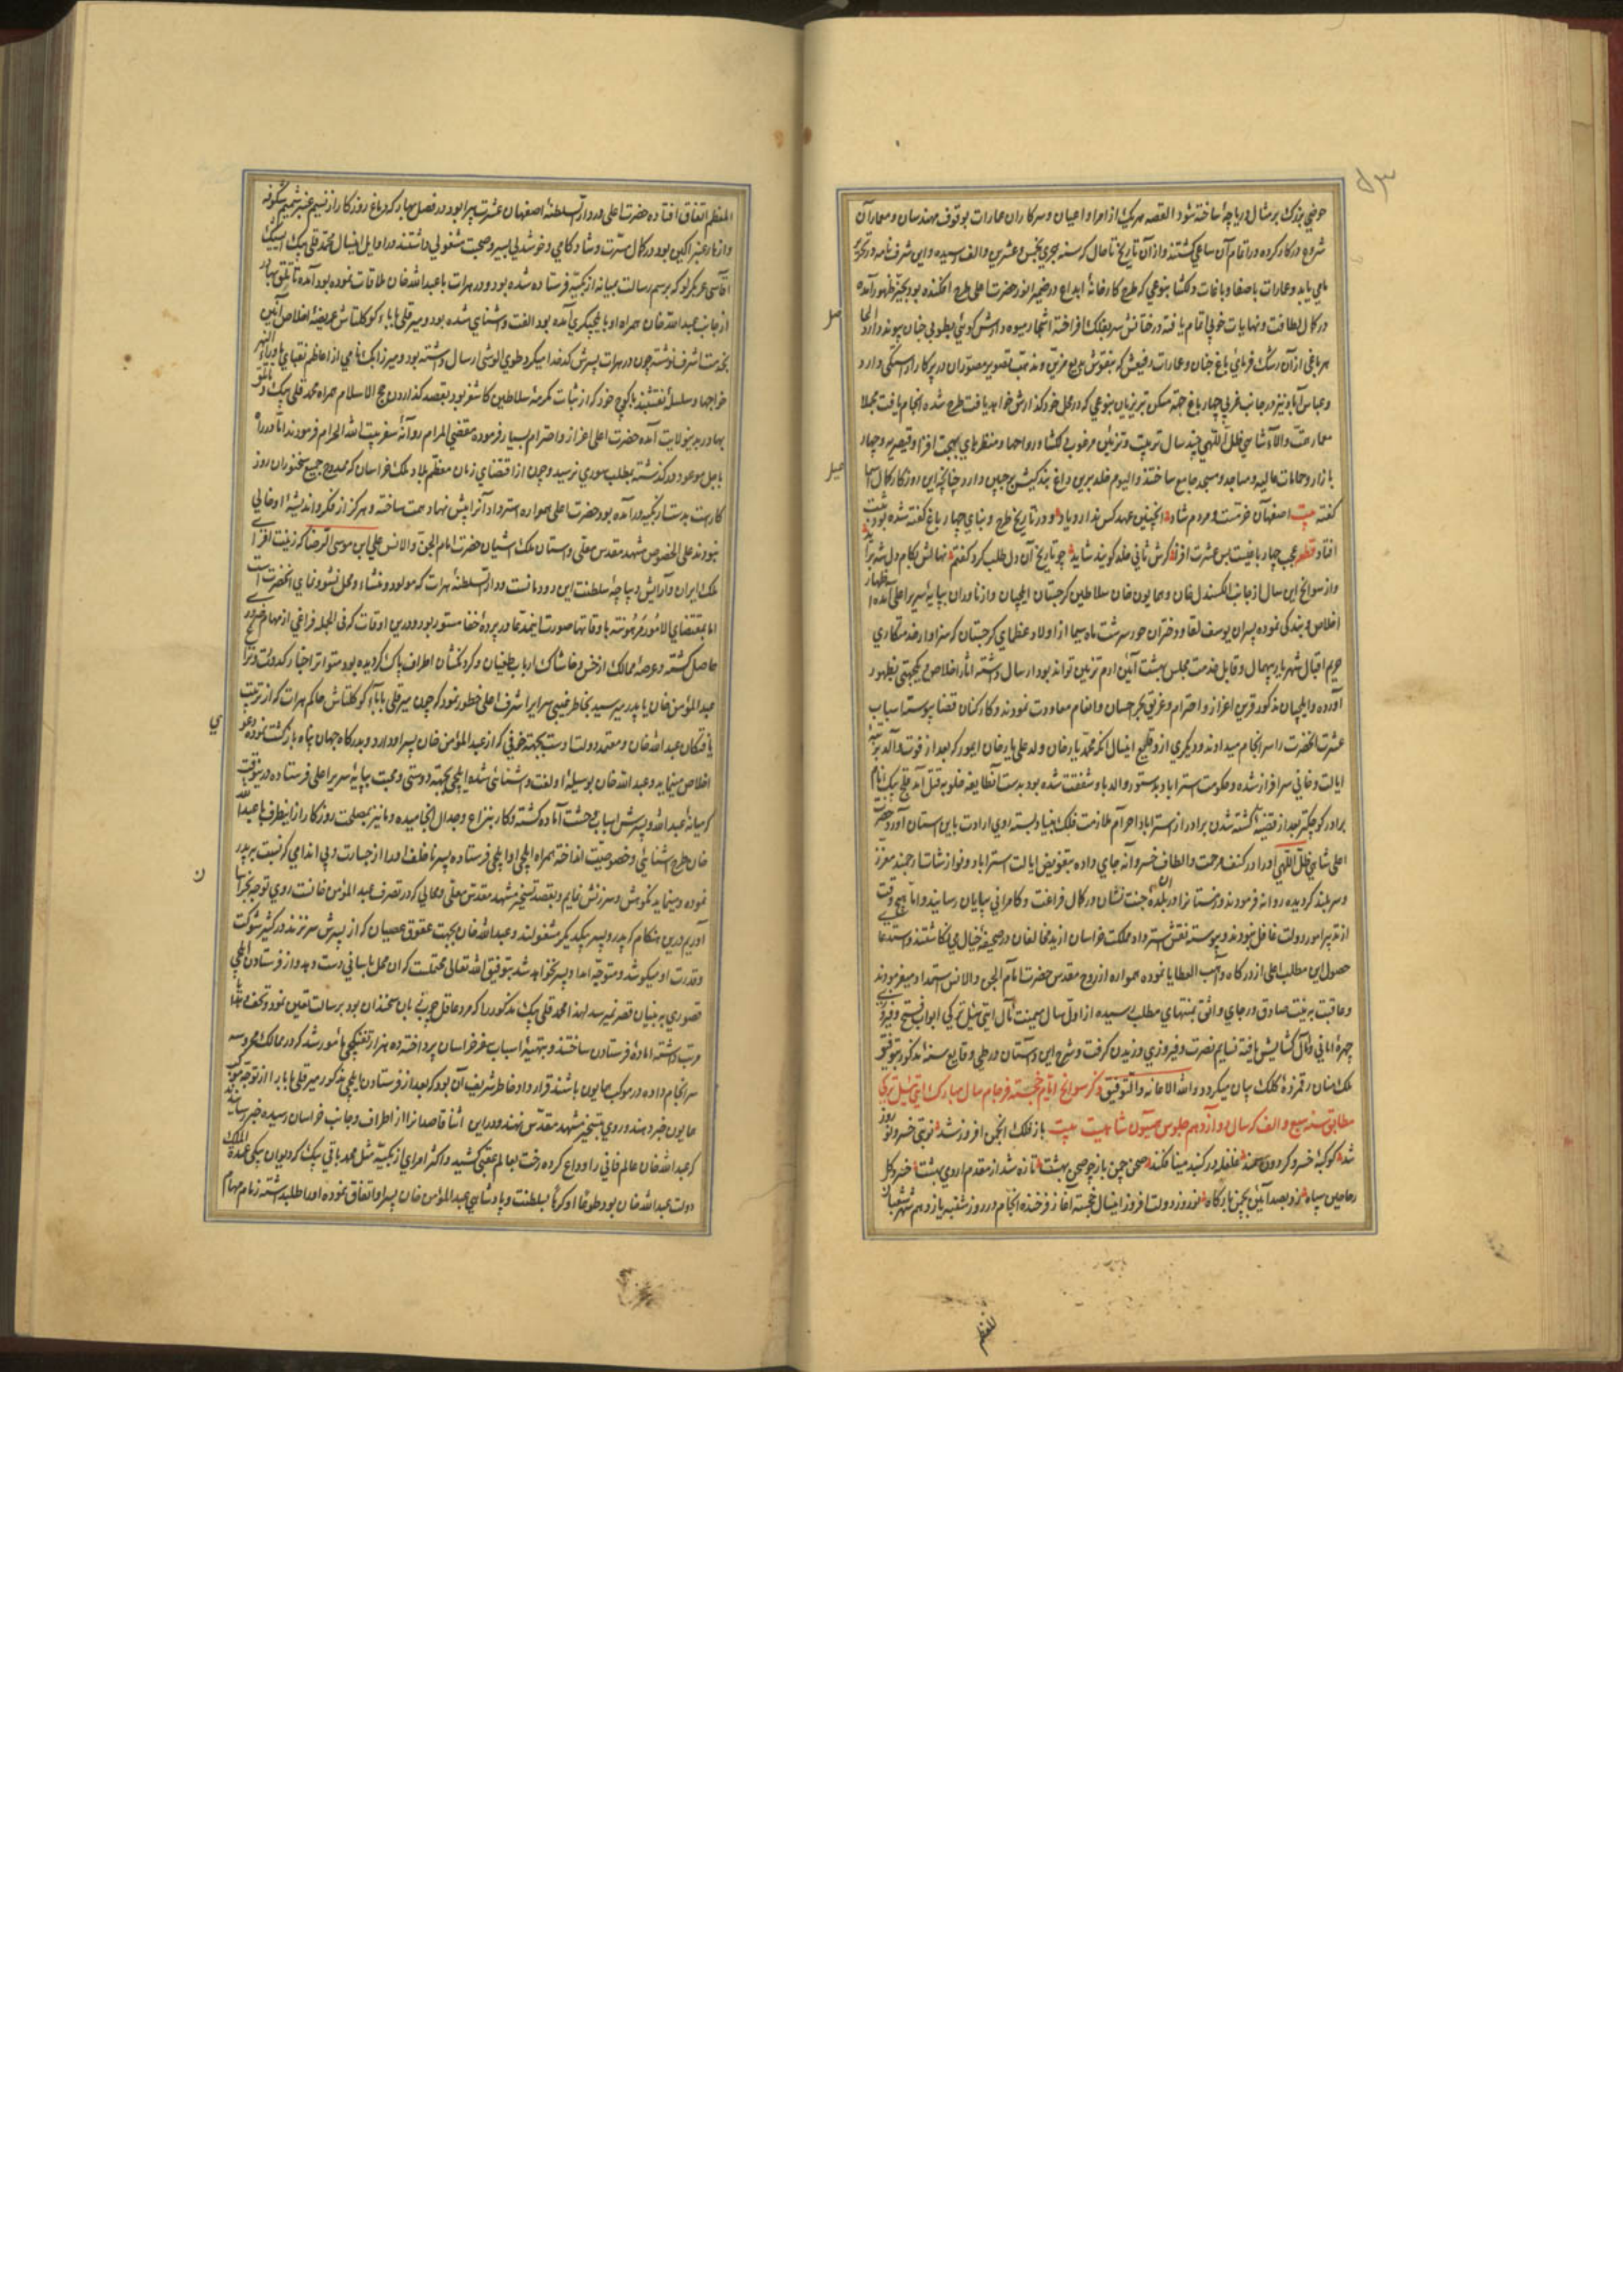 حوضی بزرگ بر مثال دریاچهٔ ساخته شود القصه هر یک از امرا و اعیان و سرکاران عمارات بوقوف مهندسان و معماران
شروع در کار کرده در اتمام آن ساعی گشتند و از آن تاریخ تا حال که سنه هجری بخمس و عشرین و الف رسیده و این شرف نامه در تحریر
می یابد و عمارات با صفا و باغات دلگشا بنوعی که طرح کارخانهٔ ابداع در ضمیر انور حضرت اعلی طرح افکنده بود بحیز ظهور آمده
در کمال لطافت و نهایات خوبی اتمام یافته درختانش سر بفلک افراخته اشجار میوه دارش گوئی بطوبی جنان پیوند دارد
هر باغی از آن رشک فرمای باغ جنان و عمارات رفیعش که بنقوش بدیع مزین و مذهب تصویر مصوران در پرکار آراستگی دارد
و عباس آباد نیز در جانب غربی چهار باغ جهة مسکن تبریزیان بنوعی که در محل خود گذارش خواهد یافت طرح شده انجام یافت مجملا
معمار همت والای شاهی ظل اللهی چند سال تربیت و تزیین مرغوب دلگشا و رواجها و منظرهای بهجت افزا و قیصریه و چهار
بازار و حمامات عالیه و مساجد و مسجد جامع ساختند و الیوم خلد برین داغ بندگیش بر جبین دارد چنانچه این روزگار کمال اسما
گفته بیت اصفهان خرمست و مردم شاد اینچنین عهد کس ندارد یاد و در تاریخ طرح و بنای چهار باغ گفته شده بود ثبت
افتاد قطعه عجب چهار باغیست بس عشرت افزا گرش ثانی خلد گویند شاید چو تاریخ آن دل طلب کرد گفتم نهالش بکام دل شه برآید
و از سوانح این سال از جانب الکسندل خان و همایون خان سلاطین گرجستان ایلچیان و از ناوران بپایهٔ سریر اعلی آمده اظهار
اخلاص و بندگی نموده پسران یوسف لقا و دختران حور سرشت ماه سیما از اولاد عظمای گرجستان که سزاوار خدمتکاری
حریم اقبال شهریار بیهمال و قابل خدمت مجلس بهشت آئین ارم تزیین تواند بود ارسال داشته آثار اخلاص و یکجهتی بظهور
آورده و ایلچیان مذکور قرین اعزاز و احترام و غریق بحر احسان و انعام معاودت نمودند و کارکنان قضا پیوسته اسباب
عشرت آنحضرت را سرانجام میدادند و دیگری از وقایع اینسال آنکه محمد یارخان ولد علی یارخان ایمور که بعد از فوت والد برتبهٔ
ایالت و خانی سرافراز شده و حکومت استراباد بدستور والد باو شفقت شده بود بدست آنطایفه غلو بقتل آمد قلیج بیک نام
برادر کوچکتر بعد از قضیهٔ کشته شدن برادر از استراباد احرام ملازمت فلک بنیاد بسته روی ارادت باین آستان آورد حضرت
اعلی شاهی ظل اللهی او را در کنف مرحمت و الطاف خسروانه جای داده بتفویض ایالت استراباد و نوازشات ارجمند معزز
و سربلند گردیده روانه فرمودند و زمستانرا در آن بلدهٔ جنت نشان در کمال فراغت و کامرانی بپایان رسانیدند اما هیچ وقت
از تدبیر امور دولت غافل نبودند و پیوسته نقش استرداد مملکت خراسان از ید مخالفان در صحیفهٔ خیال می نگاشتند و استدعای
حصول این مطلب اعلی از درگاه واهب العطایا نموده همواره از روح مقدس حضرت امام الجن و الانس استمداد میفرمودند
و عاقبت به نیت صادق و رجای واثق بمنتهای مطلب رسیده از اول سال میمنت مآل ایت ئیل ترکی ابواب فتح و فیروزی بر
چهرهٔ امانی و آمال گشایش یافته نسایم نصرت و فیروزی وزیدن گرفت و شرح این داستان در طی وقایع سنهٔ مذکور بتوفیق
ملک منان رقمزدهٔ کلک بیان میگردد و من الله الاعانه و التوفیق ذکر سوانح ایام خجسته فرجام سال مبارک ایت ئیل ترکی
مطابق سنه سبع و الف که سال دوازدهم جلوس همیون شاهیست بیت باز فلک انجمن افروز شد نوبتی خسرو نوروز
شد کوکبهٔ خسرو گردون سمند غلغله در گنبد مینا فکند صحن چمن باز چو صحن بهشت تازه شد از مقدم اردی بهشت خسرو گل
ریاحین سپاه زد بصد آئین بچمن بارگاه نوروز دولت افروز اینسال خجسته آغاز فرخنده انجام در روز شنبه یازدهم شهر شعبان
للمنظم
المنظم اتفاق افتاده حضرت اعلی در دار السلطنهٔ اصفهان عشرت پیرا بود در فصل بهار که دماغ روزگار از نسیم عنبر شمیم شکوفه
و ازهار عنبر آگین بود در کمال مسرت و شادکامی و خوشدلی بسیر و صحبت مشغولی داشتند در اوایل اینسال محمد قلی بیک بیک
آقاسی عربگرلو که برسم رسالت بمیانهٔ ازبکیه فرستاده شده بود و در هرات با عبدالله خان ملاقات نموده بود آمده تالتق بهادر
از جانب عبدالله خان همراه او بایلچیگری آمده بود الفت و آشنائی شده بود و میر قلی بابا کوکلتاش عریضهٔ اخلاص آئین
بخدمت اشرف نوشته چون در هرات پسرش کدخدا میکرد طوی الوشی ارسال داشته بود و میرزا بیک نامی از اعاظم نقبای ماوراءالنهر
خواجها و سلسلهٔ نقشبندیه باکوچ خود که از بنات مکرمهٔ سلاطین کاشغر بود بقصد گذاردن حج الاسلام همراه محمد قلی بیک و تالتق
بهادر بدینولایت آمده حضرت اعلی اعزاز و احترام بسیار فرموده مقضی المرام روانهٔ سفر بیت الله الحرام فرمودند اما در راه
باجل موعود درگذشته بمطلب صوری نرسید و چون از اقتضای زمان معظم بلاد ملک خراسان که ممدوح جمیع سخنوران روز
کارست بدست ازبکیه درآمده بود حضرت اعلی همواره استرداد آنرا پیش نهاد همت ساخته و هرگز از فکر و اندیشهٔ او خالی
نبودند علی الخصوص مشهد مقدس معلی و آستان ملک آشیان حضرت امام الجن و الانس علی ابن موسی الرضا که زینت افزای
ملک ایران و آرایش دیباچهٔ سلطنت این دودمانست و دار السلطنهٔ هرات که مولود و منشاء و محل نشو و نمای آنحضرت است
اما بمقتضای الامور مرهونة باوقاتها صورت اینمدعا در پردهٔ خفا مستور بود و درین اوقات که فی الجمله فراغی از مهام ضروری
حاصل گشته و عرصهٔ ممالک از خس و خاشاک ارباب طغیان و گردنکشان اطراف پاک گردیده بود متواتر اخبار کدورت و نزاع
عبدالمؤمن خان با پدر میرسید بخاطر غیبی سرایر اشرف اعلی خطور نمود که چون میر قلی بابای کوکلتاش حاکم هرات که از تربیت
یافتگان عبدالله خان و معتمد دولت اوست بجهة خوفی که از عبدالمؤمن خان پسر او دارد و بدرگاه جهان پناه بازگشت نموده دعوی
اخلاص مینماید و عبدالله خان بوسیلهٔ او الفت و آشنائی شده ایلچی بجهة دوستی و محبت بپایهٔ سریر اعلی فرستاده درینوقت
که میانهٔ عبدالله و پسرش اسباب وحشت آماده گشته و کار بنزاع و جدال انجامیده و ما نیز بمصلحت روزگار از اینطرف با عبدالله
خان طرح آشنائی و خصوصیت انداخته همراه ایلچی او ایلچی فرستاده پسر ناخلف او را از جسارت و بی اندامی که نسبت به پدر
نموده و مینماید نکوهش و سرزنش نمایم و بقصد تسخیر مشهد مقدس معلی و محالی که در تصرف عبدالمؤمن خانست روی توجه بخراسان
آوریم درین هنگام که پدر و پسر بیکدیگر مشغولند و عبدالله خان بجهت عقوق عصیان که از پسرش سرزند در کسر شوکت
و قدرت او میکوشد و متوجه امداد پسر نخواهد شد بتوفیق الله تعالی محتملست که آن محل بآسانی دست دهد و از فرستادن ایلچی
قصوری به بنیان قصر نمیرسد لهذا محمد قلی بیک مذکور را که مرد عاقل چرب زبان سخندان بود برسالت تعیین نمود و تحف و هدایا
مرتب داشته آمادهٔ فرستادن ساختند و بتهیهٔ اسباب سفر خراسان پرداخته ده هزار تفنگچی مأمور شد که در ممالک محروسه
سرانجام داده در موکب همایون باشند قرارداد خاطر شریف آن بود که بعد از فرستادن ایلچی مذکور میر قلی بابا را از توجه موکب
همایون خبر دهند و روی بتسخیر مشهد مقدس نهند و در این اثنا قاصدان از اطراف و جانب خراسان رسیده خبر رسانیدند
که عبدالله خان عالم فانی را وداع کرده رخت بعالم عقبی کشید و اکثر امرای ازبکیه مثل محمد باقی بیک که دیوان بیگی عمدة الملک
دولت عبدالله خان بود طوعا او کرها بسلطنت و پادشاهی عبدالمؤمن خان پسر او اتفاق نموده او را طلبداشته زمام مهام